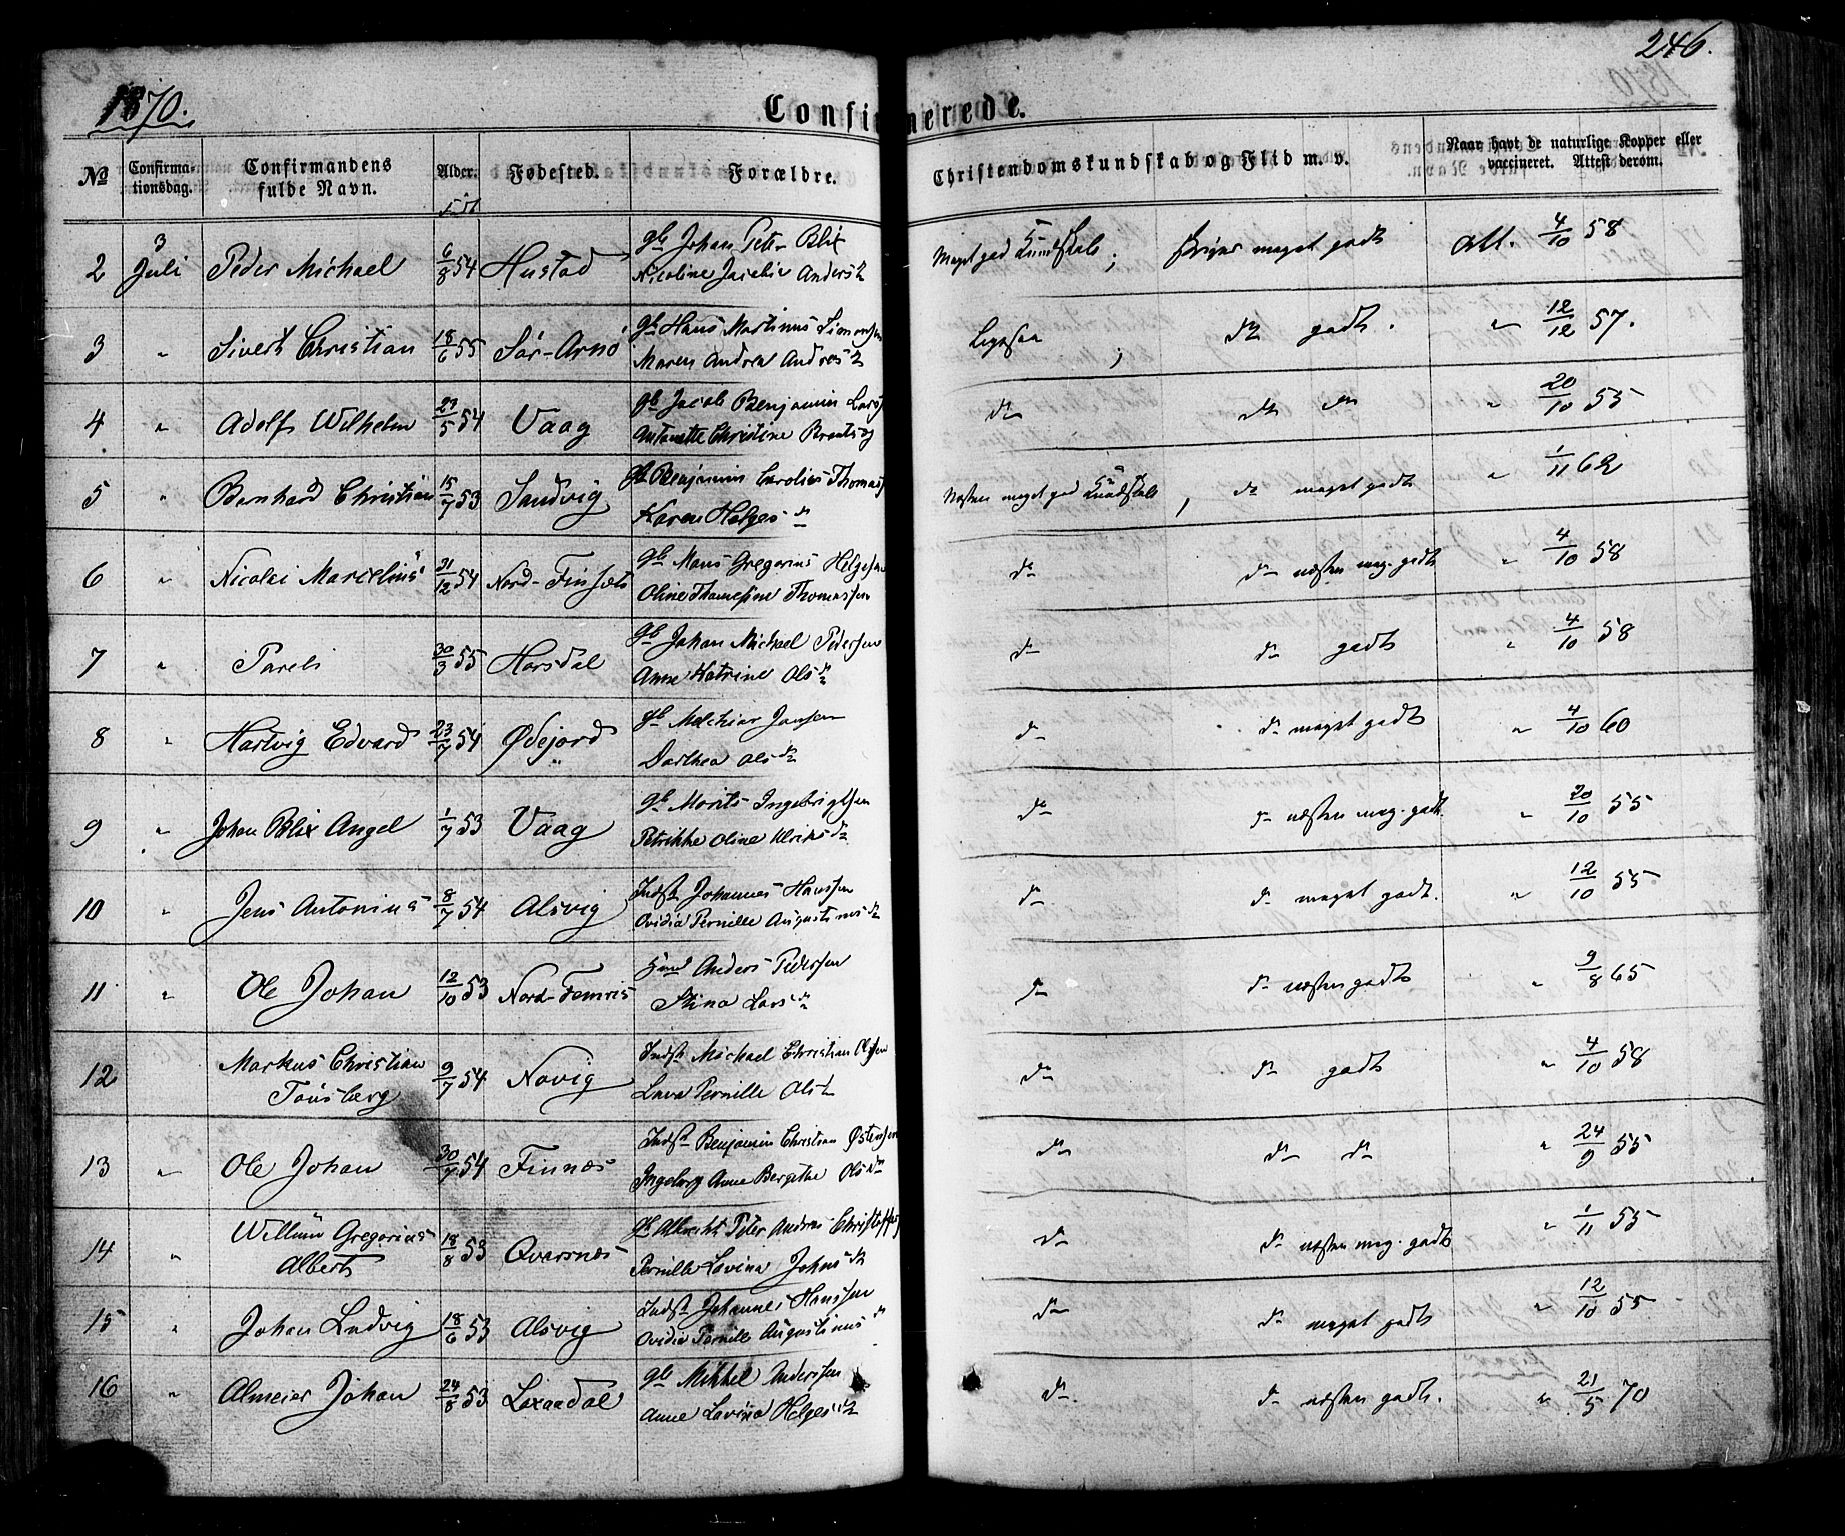 246.
1870.
Confirmerede.
No
Confirmationsdag.
Confirmandens fulde Navn.
Alder.
Fødested.
Forældre.
Christendomskundskab og Flid m. v.
Naar havt de naturlige Kopper eller vaccineret. Attest derom.
født
2 3 Juli Peder Michael 6/8 54 Hustad Johan Peter Blix
Nicoline Jacobine Anders
Meget god Kundskab; meget godt att. 4/10 58
3 " Sivert Christian 18/6 55 Sør-Arnö Hans Martinus Simonsen
Maren Andrea Andreas
Ligesaa; do godt. " 12/12 57.
4 " Adolf Wilhelm 23/5 54 Vaag Jacob Benjamin Lars
Antonette Christine
do do do " 20/10 55
5 " Bernhard Christian 15/7 53 Sandvig Benjamin Carolius Thomas
Karen Helgesd
Næsten meget god Kundskab, do meget godt " 1/11 62
6 " Nicolai Marcelius 31/12 54 Nord-Finsæt Mons Gregorius Helgesen
Oline Thomassen
do do næsten meg. godt " 4/10 58
7 " Pareli 30/3 55 Horsdal Johan Michael Pedersen
Anne Katrine Olsd
do do godt " 4/10 58
8 " Hartvig Edvard 23/7 54 Ødejord Melchior Jansen
Dorthea Olsd
do do meget godt " 4/10 60
9 " Johan Blix Angel 1/7 53 Vaag Morits Ingebrigtsen
Petrikke Oline Ulriksd
do do næsten meg. godt. " 20/10 55
10 " Jens Antonius 8/7 54 Alsvig Indst Johannes Hanssen
Ovidia Pernille Augustinusd
do do meget godt. " 12/10 55
11 " Ole Johan 12/10 53 Nord-Femris Anders Pedersen
Stina Larsd
do do næsten godt " 9/8 65
12 Markus Christian Tønsberg 9/7 54 Novig Indst Michael Christian Olsen
Lava Pernille Olsd
do do godt " 4/10 58
13 " Ole Johan 30/7 54 Finnæs Indst Benjamin Christian Østensen
Ingeborg Anne Bergithe Olsd
do do do " 24/9 55
14 " Willum Gregorius Albert 18/8 53 Qvarsnæs Albrecht Peter Andreas
Pernille Lovina Johnsd
do do næsten meg. godt " 1/11 55
15 " Johan Ludvig 18/6 53 Alsvig Indst Johannes Hanssen
Ovidia Pernille Augustinusd
do do meget godt " 12/10 55
16 " Almeier Johan 24/8 53 Lexaadal Mikkel Anderssen
Anne Lovina Helgesd
do do næsten godt. " 21/5 70